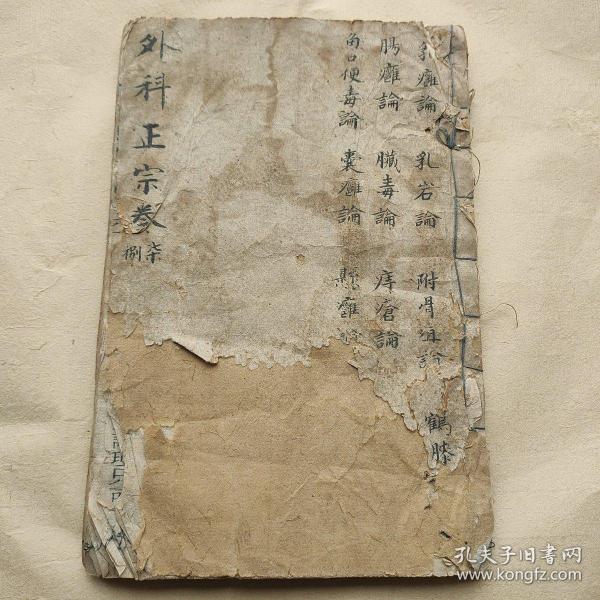 乳癰論 乳岩論 附骨疽論 鶴膝
腸癰論 臟毒論 痔瘡論
魚口便毒論 囊癰論 懸癰論
外科正宗卷
柒
捌
孔夫子旧书网
www.kongfz.com